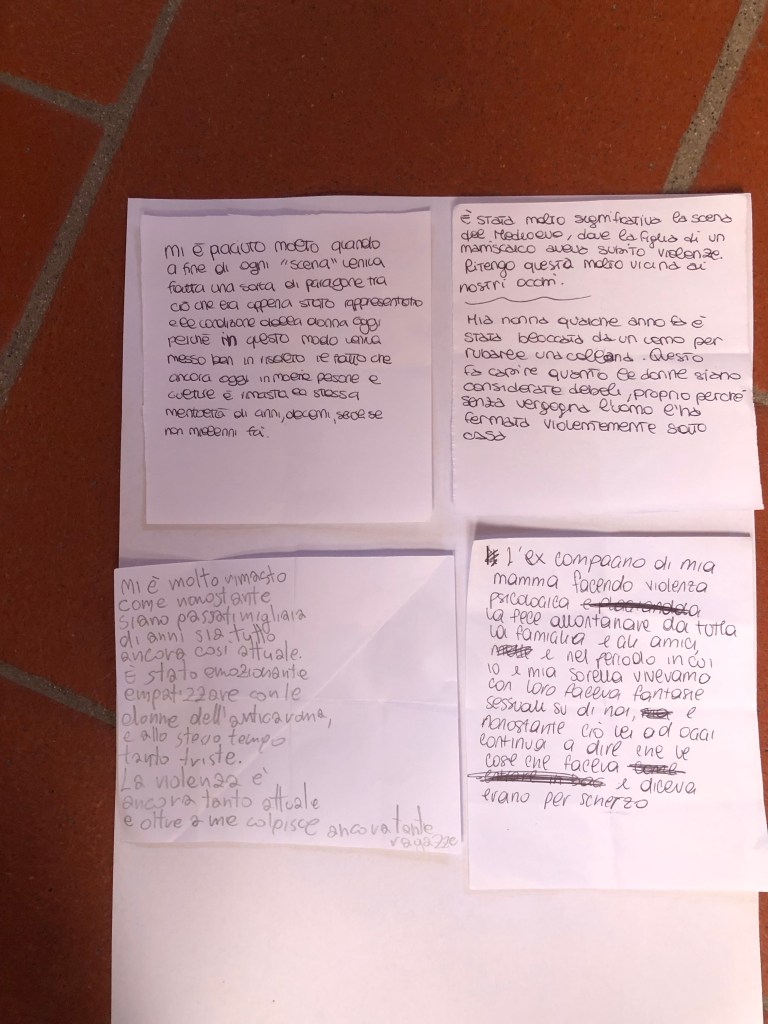 MI È PIACIUTO MOLTO QUANDO
A FINE DI OGNI "SCENA" VENIVA
FATTA UNA SORTA DI PARAGONE TRA
CIÒ CHE ERA APPENA STATO RAPPRESENTATO
E LE CONDIZIONE DELLA DONNA OGGI
PERCHÈ IN QUESTO MODO VENIVA
MESSO BEN IN RISALTO IL FATTO CHE
ANCORA OGGI IN MOLTE PERSONE E
CULTURE È RIMASTA LA STESSA
MENTALITÀ DI ANNI, DECENNI, SECOLI SE
NON MILLENNI FA.
È STATA MOLTO SIGNIFICATIVA LA SCENA
DEL MEDIOEVO, DOVE LA FIGLIA DI UN
MANISCALCO AVEVA SUBITO VIOLENZE.
RITENGO QUESTA MOLTO VICINA AI
NOSTRI OCCHI.
MIA NONNA QUALCHE ANNO FA È
STATA BECCATA DA UN UOMO PER
RUBARLE UNA COLLANA. QUESTO
FA CAPIRE QUANTO LE DONNE SIANO
CONSIDERATE DEBOLI, PROPRIO PERCHÉ
SENZA VERGOGNA L'UOMO L'HA
FERMATA VIOLENTEMENTE SOTTO
CASA
MI È MOLTO RIMASTO
COME NONOSTANTE
SIANO PASSATI MIGLIAIA
DI ANNI SIA TUTTO
ANCORA COSÌ ATTUALE.
È STATO EMOZIONANTE
EMPATIZZARE CON LE
DONNE DELL'ANTICA ROMA,
E ALLO STESSO TEMPO
TANTO TRISTE.
LA VIOLENZA È
ANCORA TANTO ATTUALE
E OLTRE A ME COLPISCE ANCORA TANTE
RAGAZZE
L'EX COMPAGNO DI MIA
MAMMA FACENDO VIOLENZA
PSICOLOGICA
LA FECE ALLONTANARE DA TUTTA
LA FAMIGLIA E GLI AMICI,
E NEL PERIODO IN CUI
IO E MIA SORELLA VIVEVAMO
CON LORO FACEVA FANTASIE
SESSUALI SU DI NOI, E
NONOSTANTE CIÒ LEI AD OGGI
CONTINUA A DIRE CHE LE
COSE CHE FACEVA
E DICEVA
ERANO PER SCHERZO